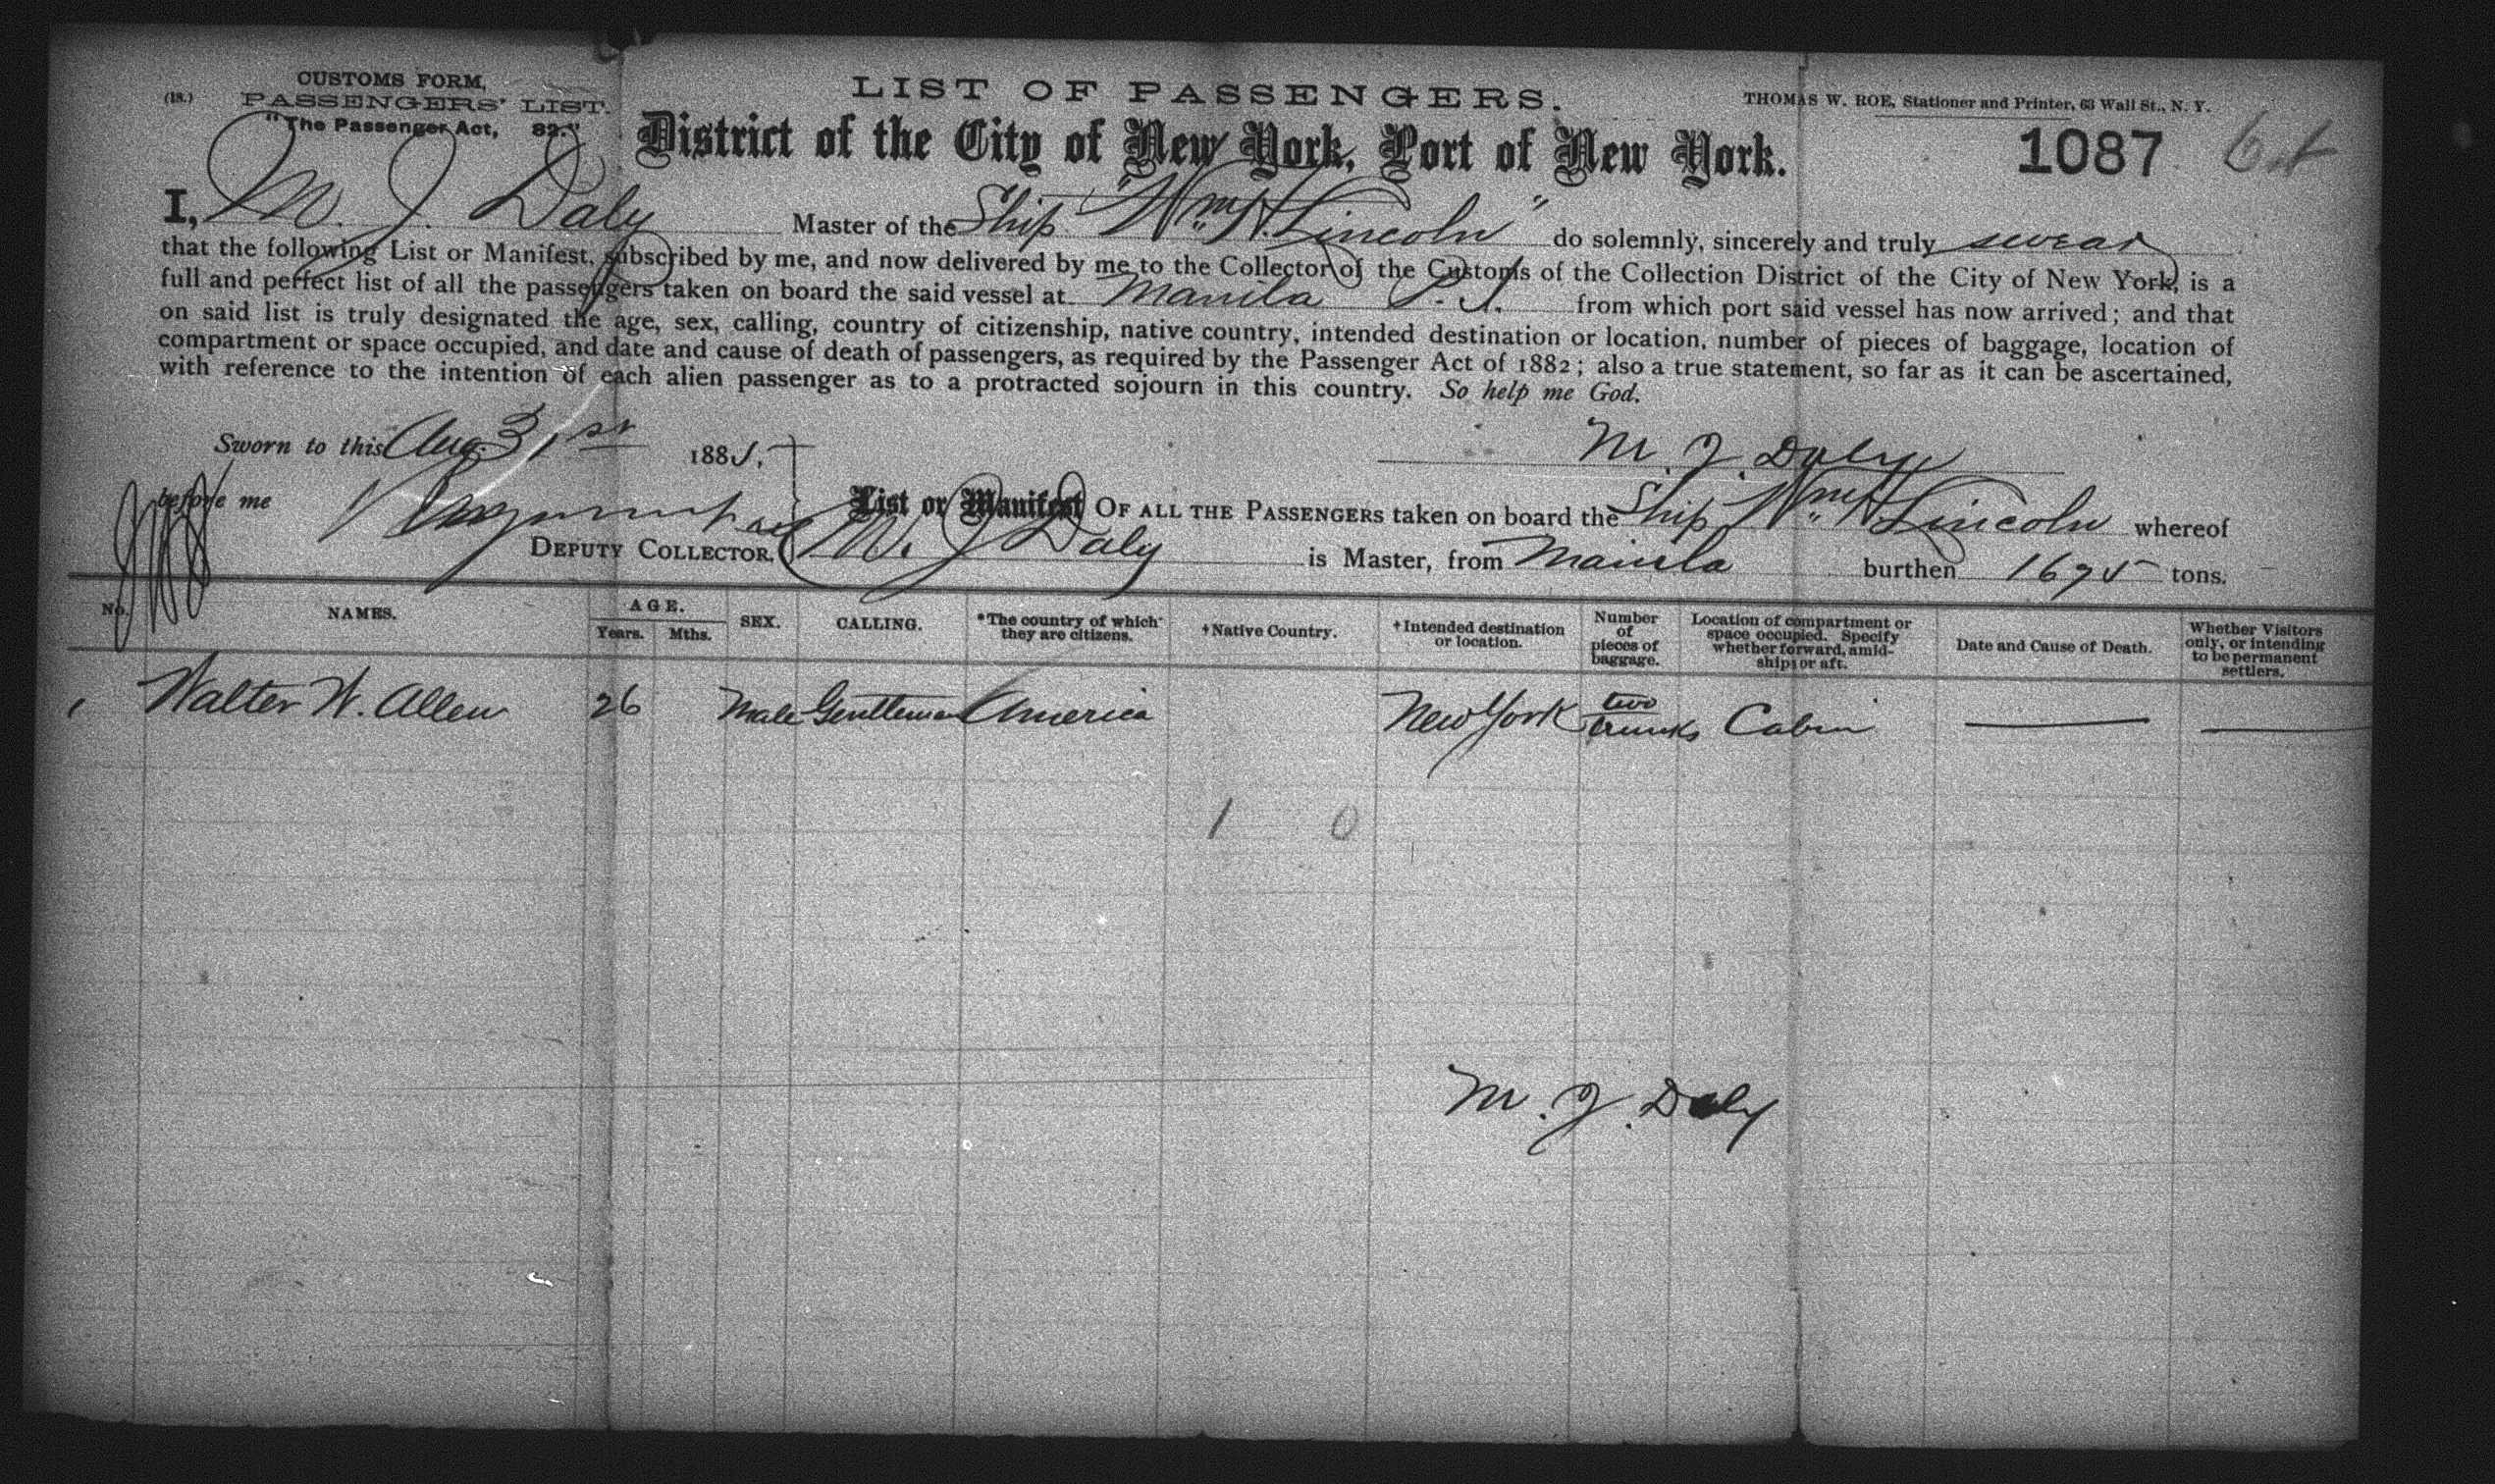 (18.)
CUSTOMS FORM,
PASSENGERS' LIST.
"The Passenger Act, 82."
LIST OF PASSENGERS.
THOMAS W. ROE, Stationer and Printer, 63 Wall St., N. Y.
District of the City of New York, Port of New York.
1087
I, M. J. Daly Master of the Ship "Wm. H. Lincoln" do solemnly, sincerely and truly swear
that the following List or Manifest, subscribed by me, and now delivered by me to the Collector of the Customs of the Collection District of the City of New York, is a
full and perfect list of all the passengers taken on board the said vessel at Manila P. I. from which port said vessel has now arrived; and that
on said list is truly designated the age, sex, calling, country of citizenship, native country, intended destination or location, number of pieces of baggage, location of
compartment or space occupied, and date and cause of death of passengers, as required by the Passenger Act of 1882; also a true statement, so far as it can be ascertained,
with reference to the intention of each alien passenger as to a protracted sojourn in this country. So help me God.
Sworn to this Aug. 31st 1885,
M. J. Daly
before me
DEPUTY COLLECTOR.
List or Manifest OF ALL THE PASSENGERS taken on board the Ship Wm. H Lincoln whereof
M. J Daly is Master, from Manila burthen 1675 tons.
No. NAMES. AGE. Years. Mths. SEX. CALLING. *The country of which they are citizens. †Native Country. †Intended destination or location. Number of pieces of baggage. Location of compartment or space occupied. Specify whether forward, amidships or aft. Date and Cause of Death. Whether Visitors only, or intending to be permanent settlers.
1 Walter W. Allen 26 Male Gentleman America New York two trunks Cabin
1 0
M. J. Daly